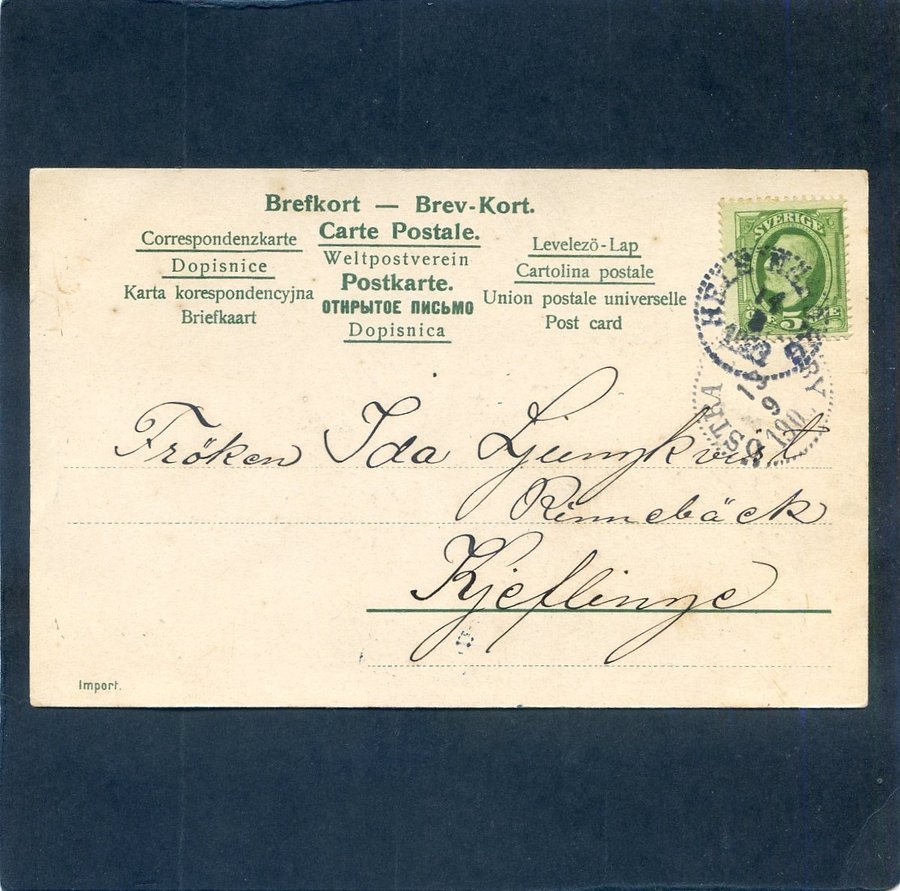 Brefkort — Brev-Kort.
Correspondenzkarte
Dopisnice
Karta korespondencyjna
Briefkaart
Carte Postale.
Weltpostverein
Postkarte.
ОТКРЫТОЕ ПИСЬМО
Dopisnica
Levelezö-Lap
Cartolina postale
Union postale universelle
Post card
SVERIGE
5
ÖSTRA
Fröken Ida Ljungkvist
Rinnebäck
Kjeflinge
Import.